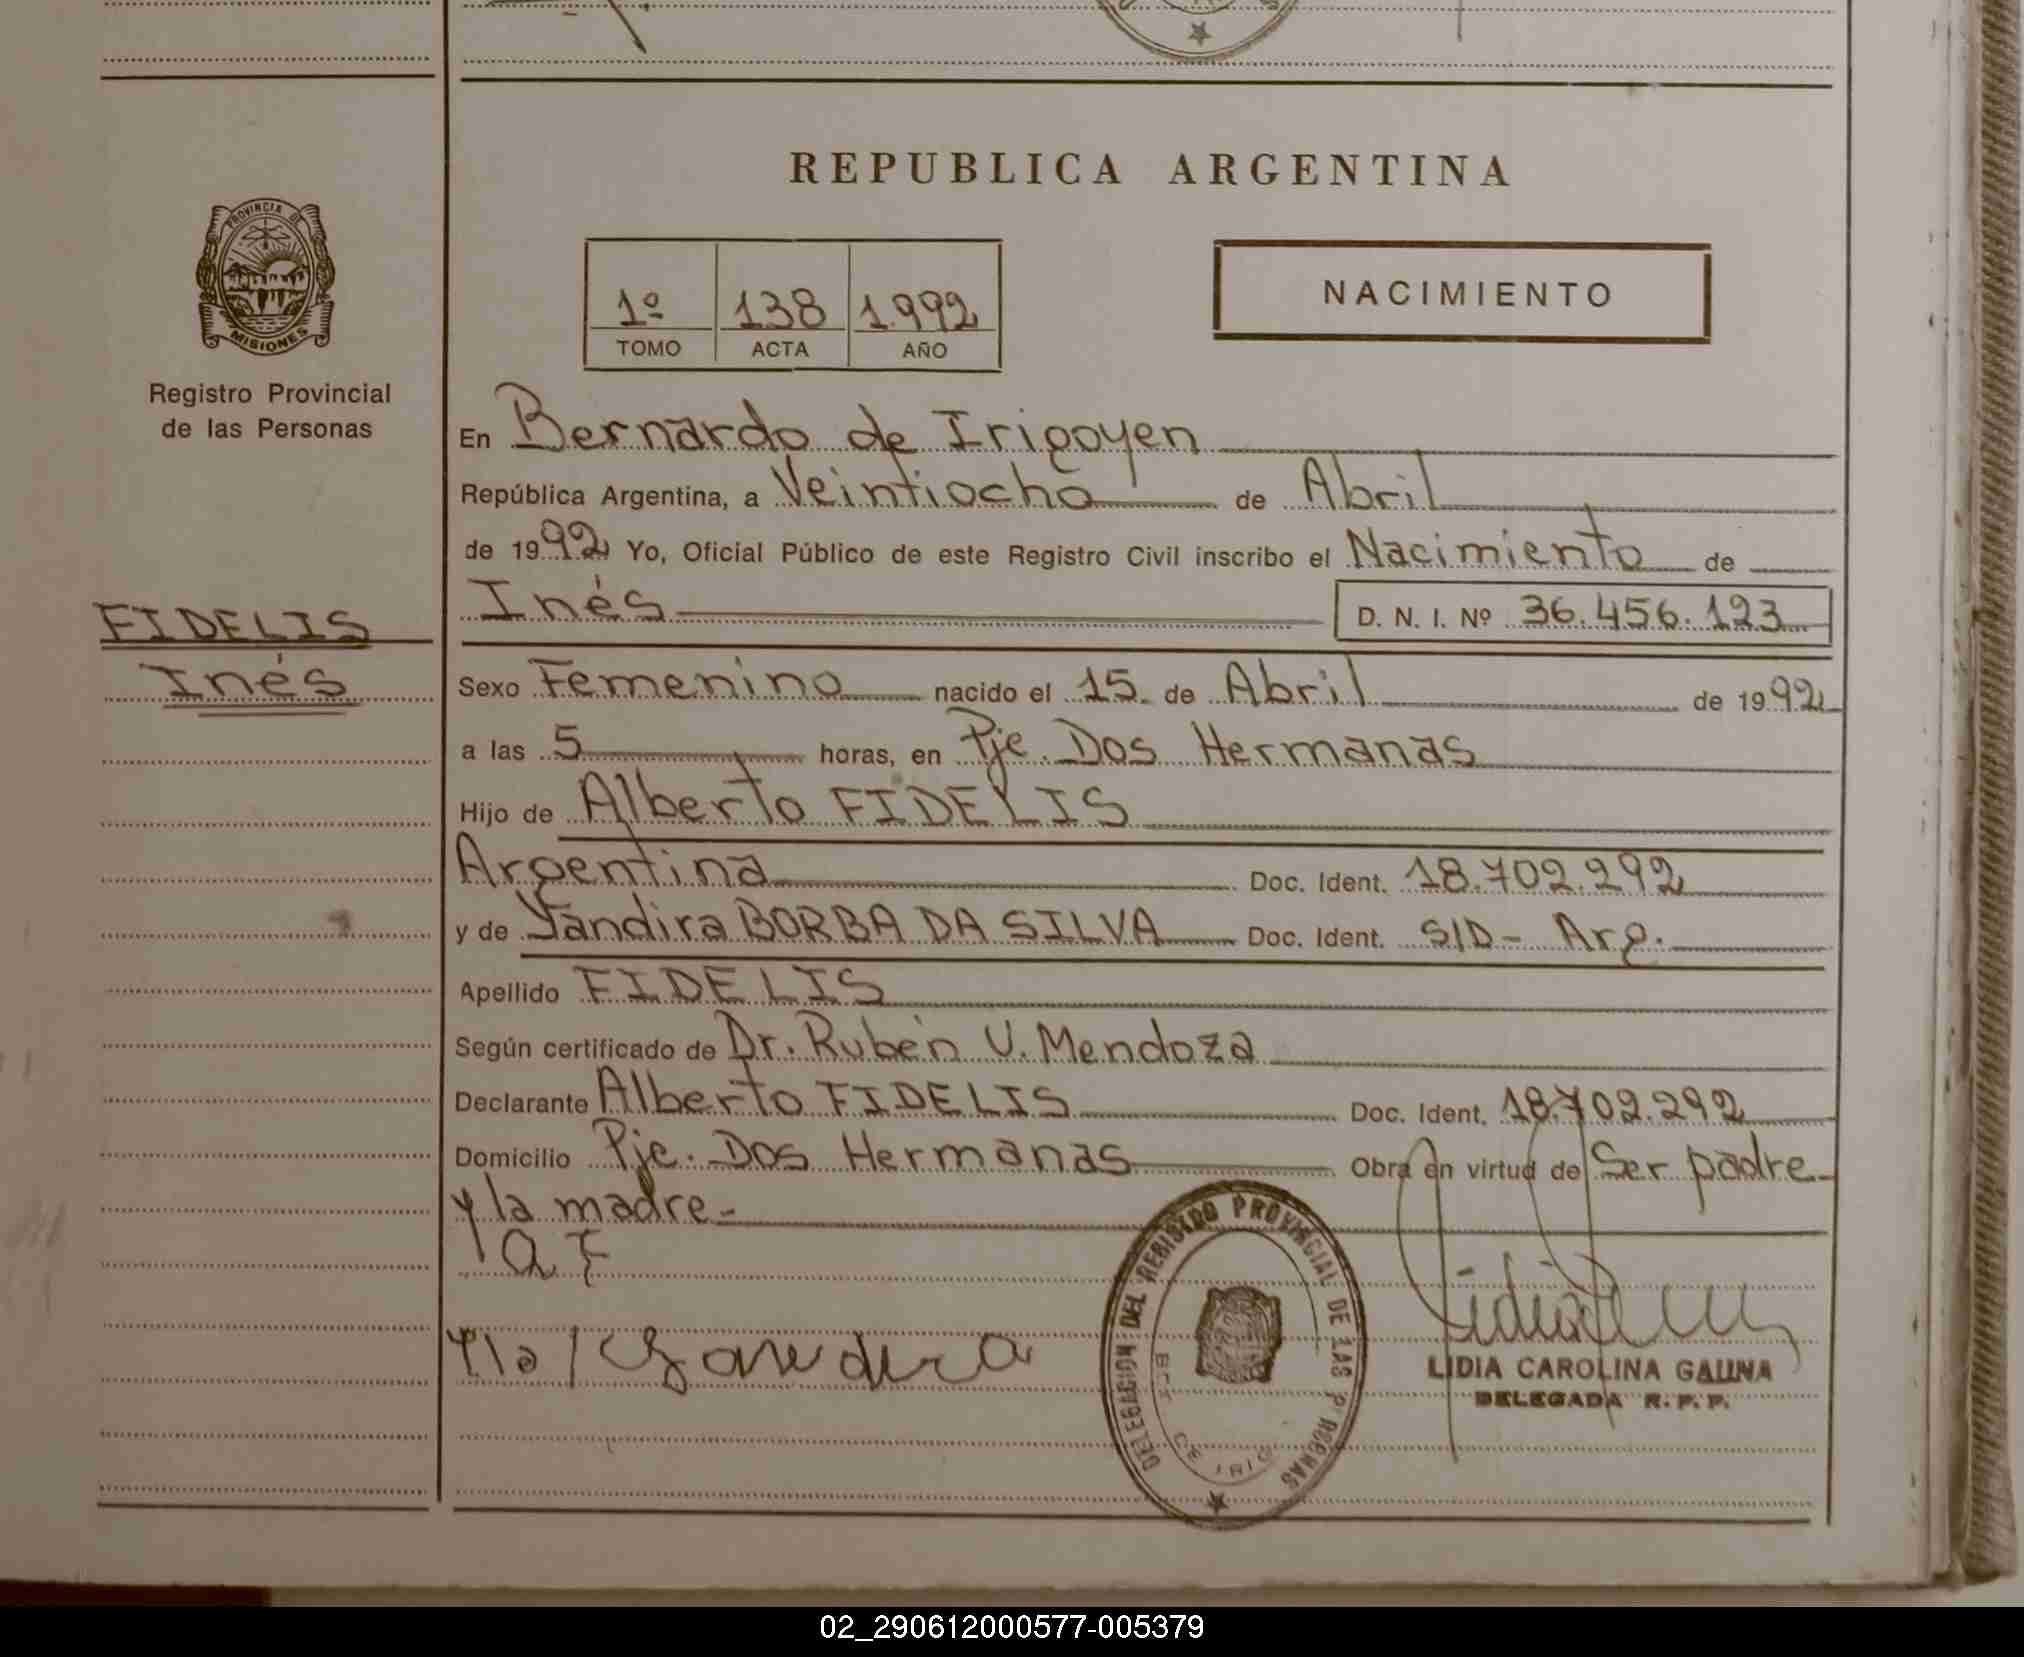 REPUBLICA ARGENTINA
PROVINCIA DE
MISIONES
Registro Provincial
de las Personas
1º 138 1.992
TOMO ACTA AÑO
NACIMIENTO
En Bernardo de Irigoyen
República Argentina, a Veintiocho de Abril
de 1992 Yo, Oficial Público de este Registro Civil inscribo el Nacimiento de
Inés D. N. I. Nº 36.456.123
FIDELIS
Inés
Sexo Femenino nacido el 15. de Abril de 1992
a las 5 horas, en Pje. Dos Hermanas
Hijo de Alberto FIDELIS
Argentina Doc. Ident. 18.702.292
y de Yandira BORBA DA SILVA Doc. Ident. S/D - Arg.
Apellido FIDELIS
Según certificado de Dr. Rubén V. Mendoza
Declarante Alberto FIDELIS Doc. Ident. 18.702.292
Domicilio Pje. Dos Hermanas Obra en virtud de Ser padre
y la madre.-
A F
DELEGACION DEL REGISTRO PROVINCIAL DE LAS PERSONAS
DE IRIG
LIDIA CAROLINA GAUNA
DELEGADA R. P. P.
02_290612000577-005379